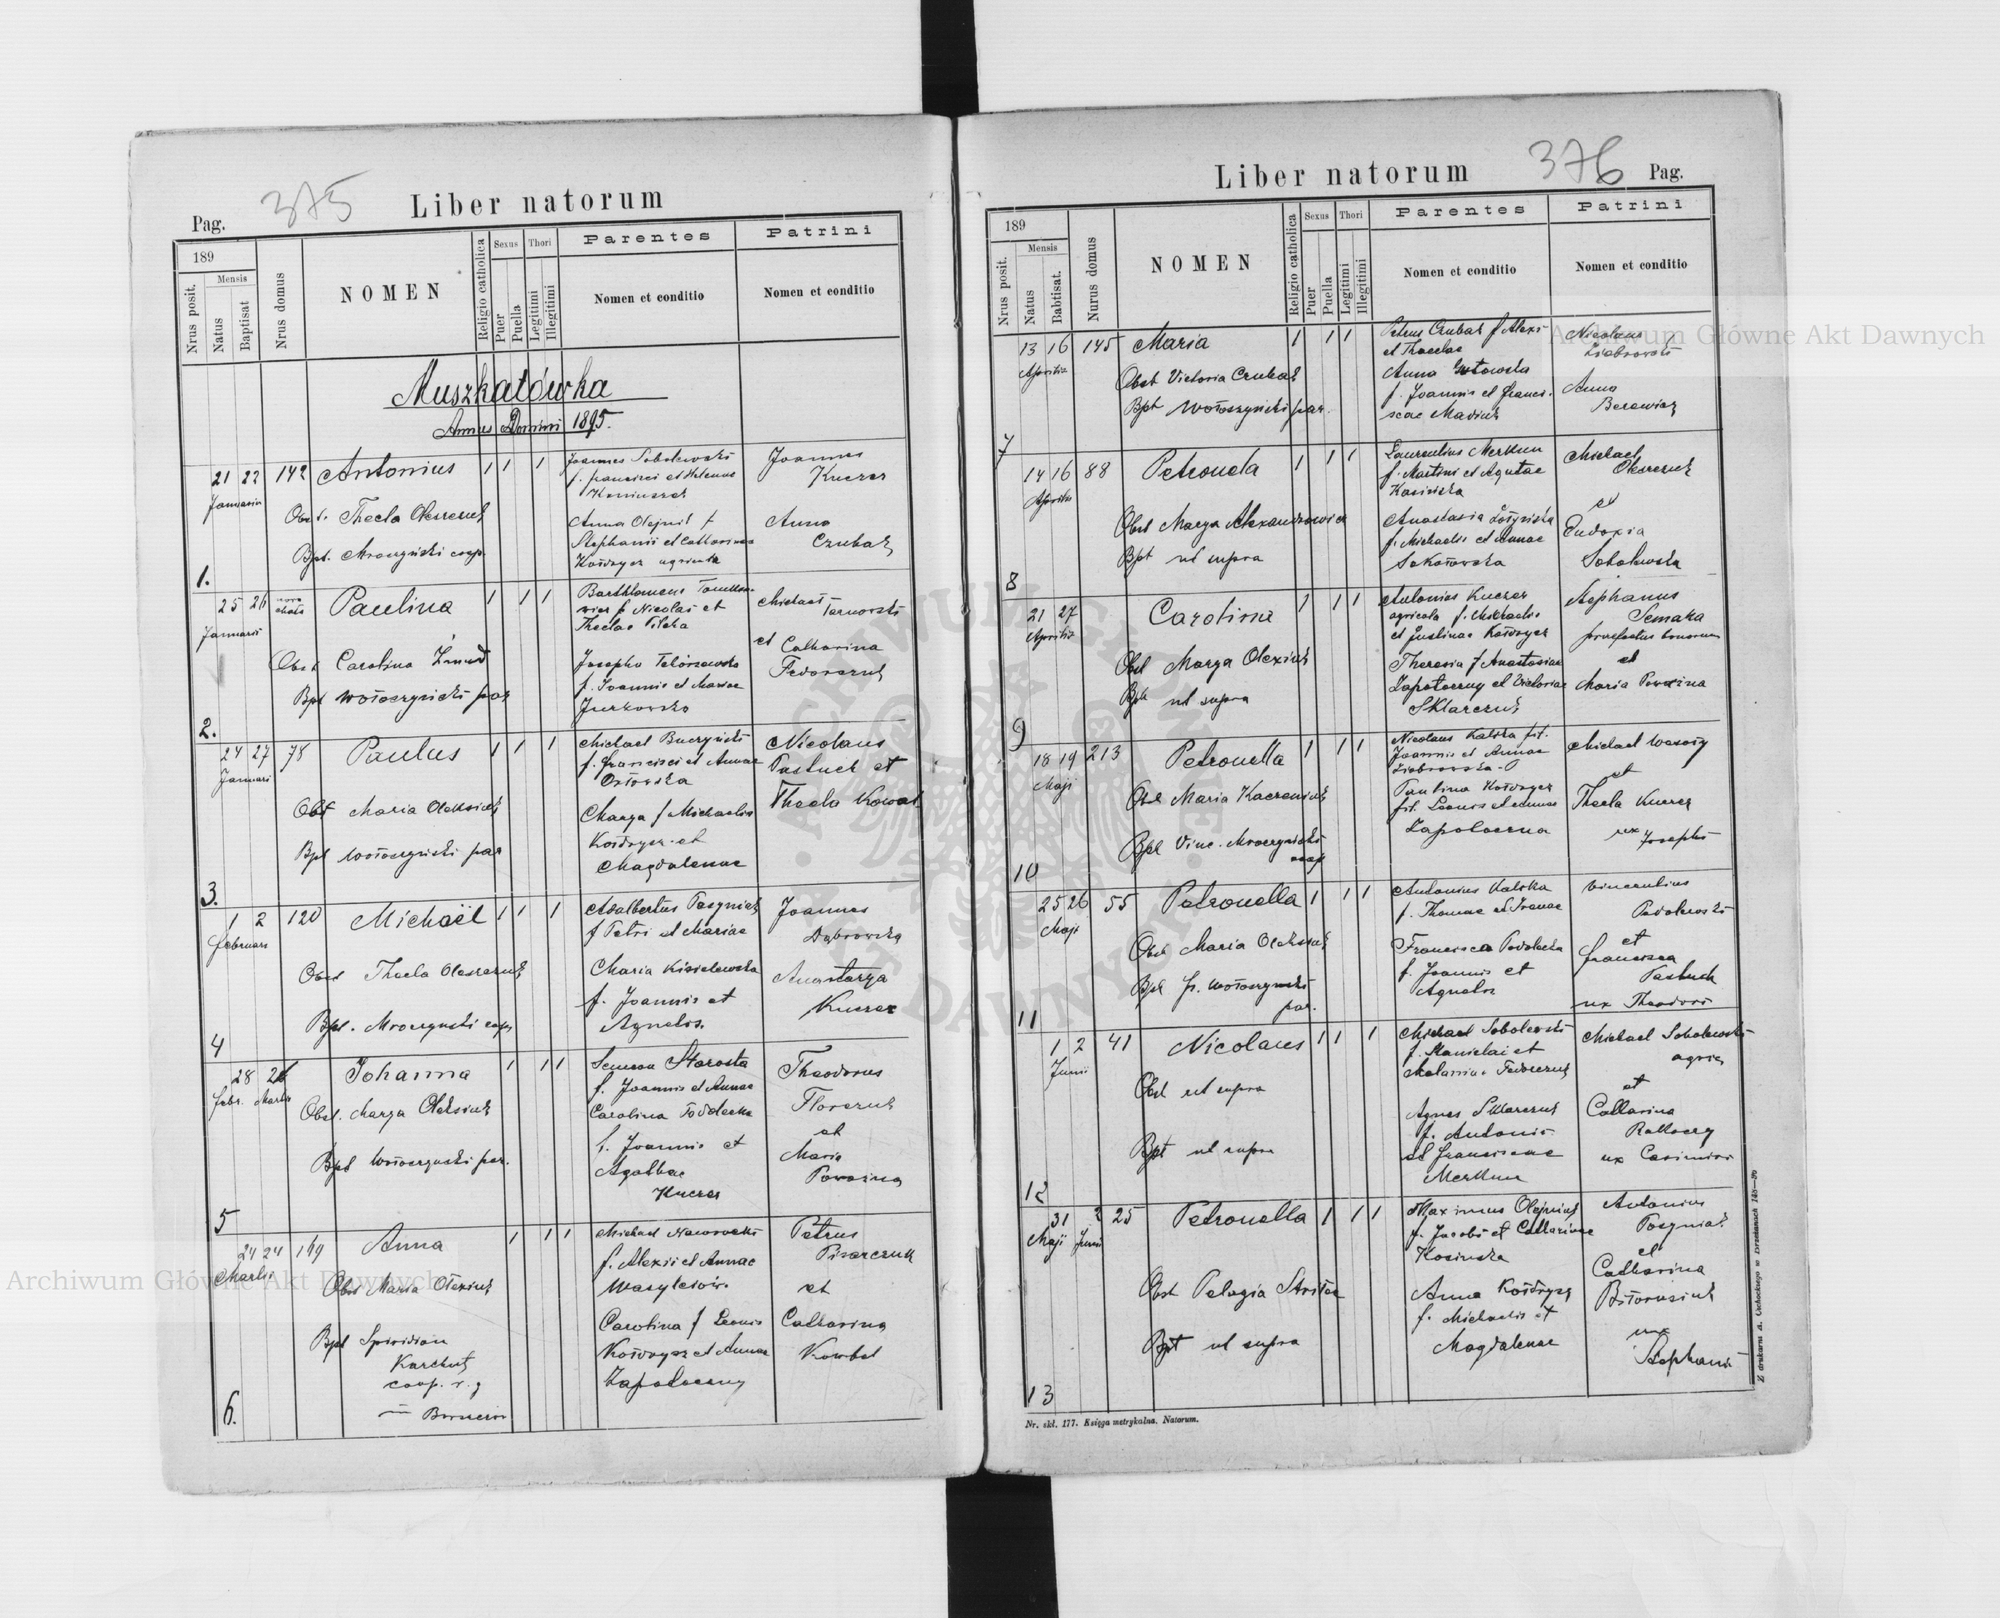 Pag. 375 Liber natorum
189
Mensis
Nrus posit.
Natus
Baptisat
Nrus domus
NOMEN
Religio catholica
Sexus
Puer
Puella
Thori
Legitimi
Illegitimi
Parentes
Nomen et conditio
Patrini
Nomen et conditio
Muszkatówka
Annus Domini 1895.
1.
21 22 142 Antonius 1 1 1
Januarii
Obst. Thecla Oleszczuk
Bpt. Mroczyński coop.
Joannes Sobolewski
f. francisci et Helenae
Anna Olejnik f.
Stephanii et Catharinae
Kołdrycz
Joannes
Kuczer
Anna
Czubak
2.
25 26 Paulina 1 1 1
Januarii
Obst Carolina
Bpt Wołoszyński par
f. Nicolai et
Theclae
Josepha
f. Joannis et Mariae
Jurkowska
Michael
Tarnowski
et Catharina
Fedorczuk
3.
24 27 78 Paulus 1 1 1
Januari
Obst Maria Oleksiuk
Bpt Wołoszyński par
Michael Buczyński
f. francisci et Annae
Marya f Michaelis
Kołdrycz et
Magdalenae
Nicolaus
Pastuch et
Thecla Kowal
4
1 2 120 Michaël 1 1 1
februari
Obst Thecla Oleszczuk
Bpt. Mroczyński coop
Adalbertus Posyniak
f Petri et Mariae
Maria Kisielewska
f. Joannis et
Agnetis.
Joannes
Dąbrowski
Anastazya
Kuczer
5
28 Johanna 1 1 1
febr. Martii
Obst. Marya Oleksiuk
Bpt Wołoszyński par.
Semeon Starosta
f. Joannis et Annae
Carolina
f. Joannis et
Agathae
Kuczer
Theodorus
Florczuk
et
Maria
Poważna
6.
24 24 119 Anna 1 1 1
Martii
Obst Maria Olexiuk
Bpt Spiridion
coop. r. g
Michael Nawrocki
f. Alexii et Annae
Wasylciów
Carolina f Leonis
Kołdrycz et Annae
Zapotoczny
Petrus
Pisarczuk
et
Catharina
Kowbel
Liber natorum 376 Pag.
189
Mensis
Nrus posit.
Natus
Babtisat.
Nurus domus
NOMEN
Religio catholica
Sexus
Puer
Puella
Thori
Legitimi
Illegitimi
Parentes
Nomen et conditio
Patrini
Nomen et conditio
7
13 16 145 Maria 1 1 1
Aprilis
Obst Victoria Czubak
Bpt Wołoszyński par.
Petrus Czubak f Alexi
et Theclae
Anna
f. Joannis et franci-
scae
Nicolaus
Anna
8
14 16 88 Petronela 1 1 1
Aprilis
Obst Marya Alexandrowicz
Bpt ut supra
Laurentius Merkun
f. Martini et Agatae
Anastasia
f. Michaelis et Annae
Sokołowska
Michael
Oleszczuk
et
Eudoxia
Sobolewska
9
21 27 Carolina 1 1 1
Aprilis
Obst Marya Olexiuk
Bpt ut supra
Antonius Kuczer
agricola f. Michaelis
et Justinae Kołdrycz
Theresia f Anastasiae
Zapotoczny et Victoriae
Sklarczuk
Stephanus
Semaka
praefectus bonorum
et
Maria Poważna
10
18 19 213 Petronella 1 1 1
Maji
Obst Maria
Bpt Vinc. Mroczyński
coop
Nicolaus Kalska fil.
Joannis et Annae
Paulina Kołdrycz
fil. Leonis et Annae
Zapotoczna
Michael Wesoły
et
Thecla Kuczer
ux
Josephi
11
25 26 55 Petronella 1 1 1
Maji
Obst Maria Oleksiuk
Bpt fr. Wołoszyński
par.
Antonius Kalska
f. Thomae et Irenae
Francisca Podolecka
f. Joannis et
Agnetis
Vincentius
et
francisca
Pastuch
ux Theodori
12
1 2 41 Nicolaus 1 1 1
Junii
Obst ut supra
Bpt ut supra
Michael Sobolewski
f. Stanislai et
Melaniae Fedorczuk
Agnes Sklarczuk
f. Antonii
et franciscae
Merkun
Michael Sobolewski
agric
et
Catharina
ux Casimiri
13
31 2 25 Petronella 1 1 1
Maji Junii
Obst Pelagia
Bpt ut supra
Maximus Olejniuk
f. Jacobi et Catharinae
Kosinska
Anna Kołdrycz
f. Michaelis et
Magdalenae
Antonius
Posyniak
et
Catharina
ux
Stephani
Nr. skł. 177. Księga metrykalna. Natorum.
Archiwum Główne Akt Dawnych
Archiwum Główne Akt Dawnych
ARCHIWUM GŁÓWNE AKT DAWNYCH